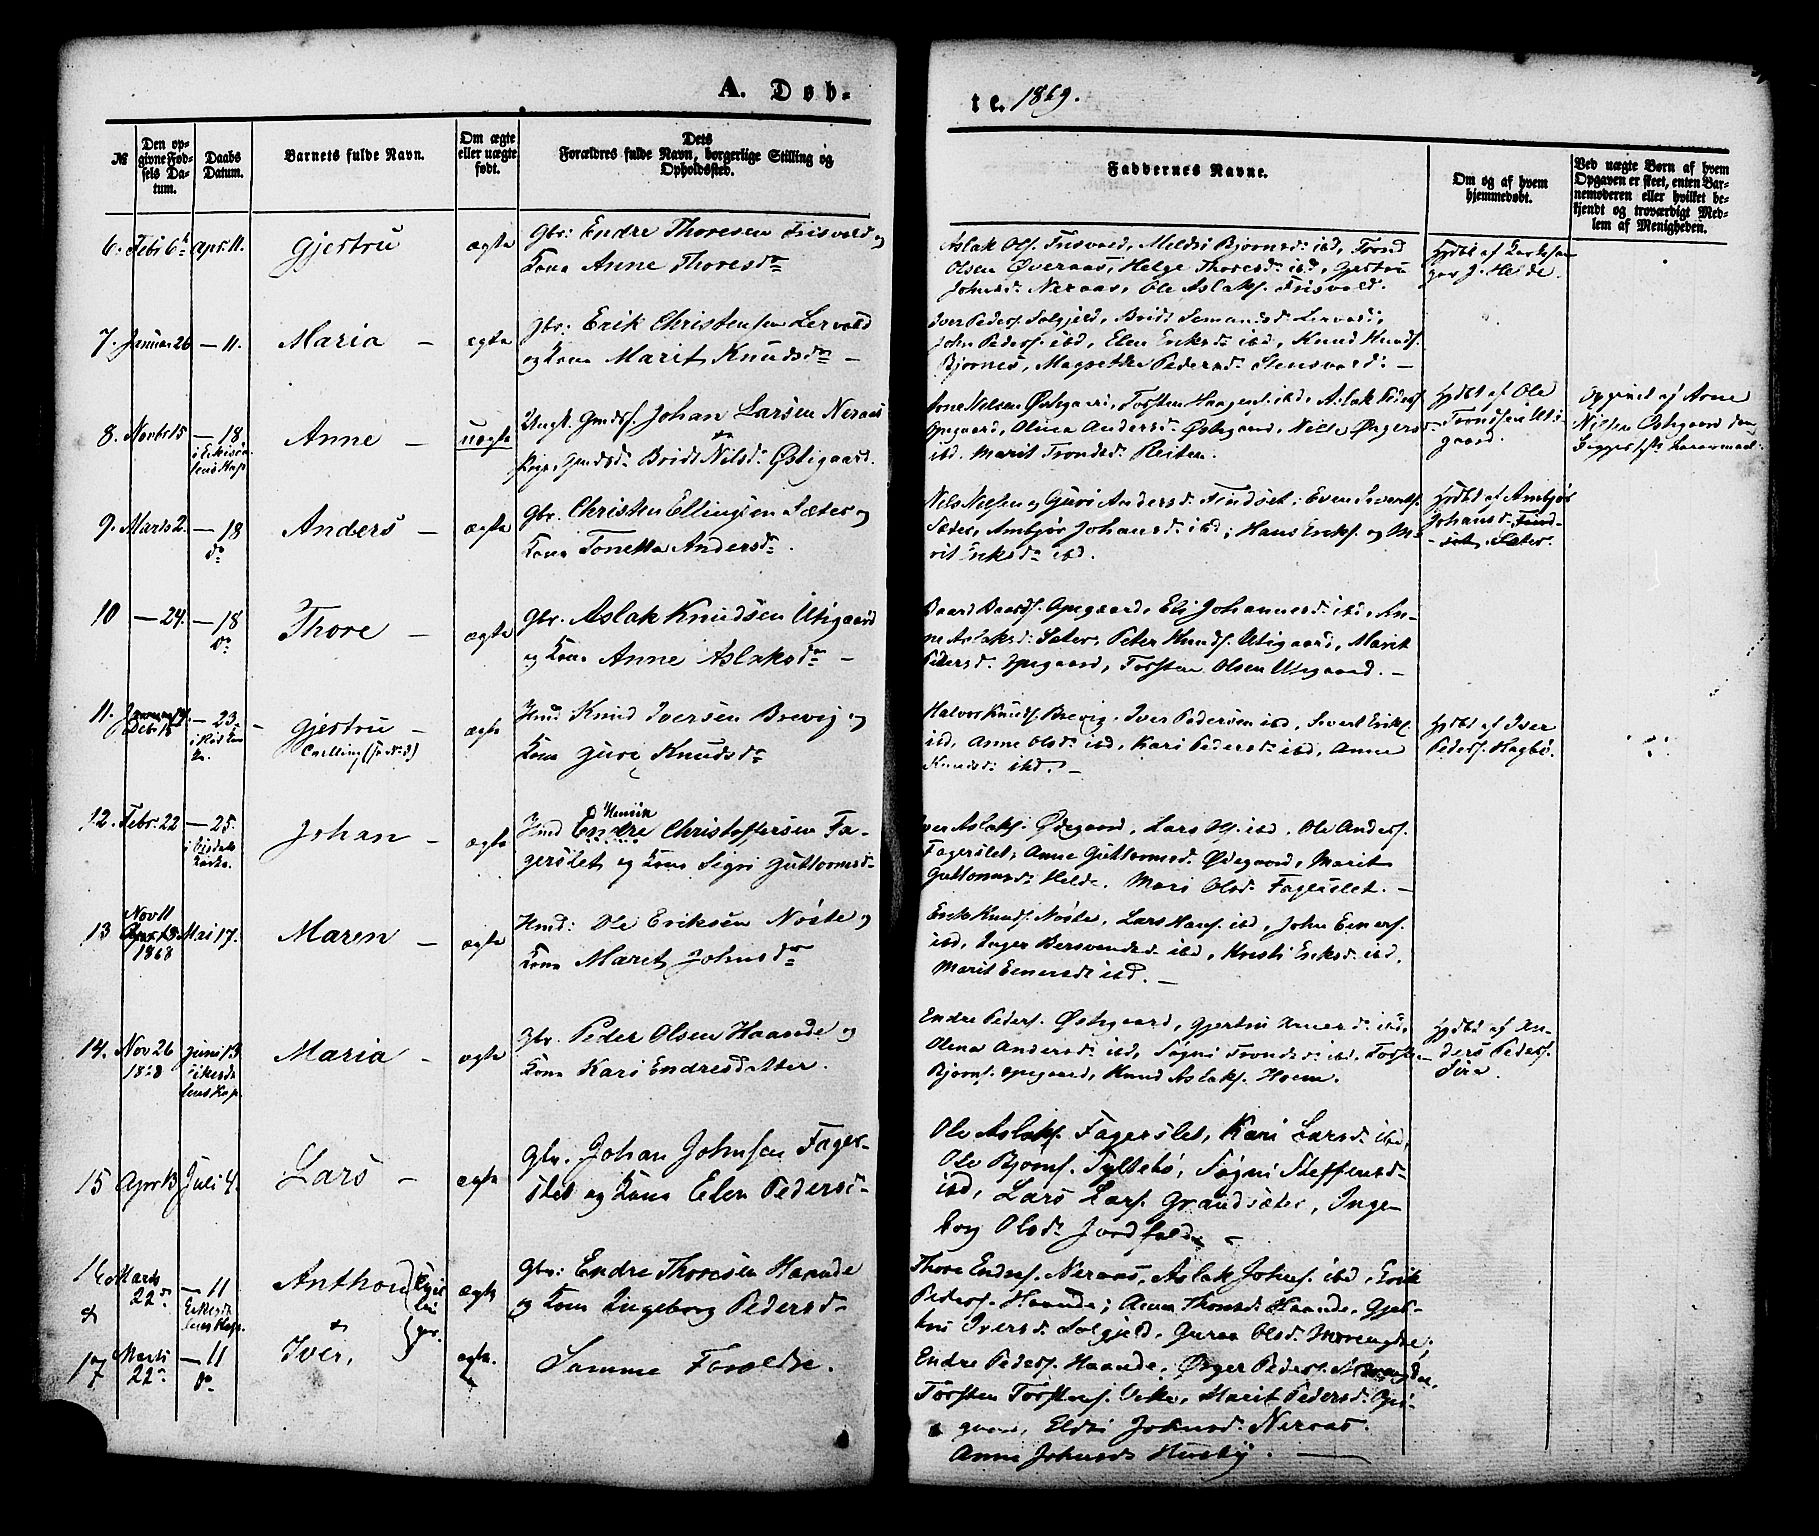 A. Døb-
te. 1869.
№
Den op-
givne Fød-
sels Da-
tum.
Daabs
Datum.
Barnets fulde Navn.
Om ægte
eller uægte
født.
Dets
Forældres fulde Navn, borgerlige Stilling og
Opholdssted.
Faddernes Navne.
Om og af hvem
hjemmedøbt.
Ved uægte Børn af hvem
Opgaven er skeet, enten Bar-
nemoderen eller hvilket be-
kjendt og troværdigt Med-
lem af Menigheden.
6. Febr 6te Apr. 11. Gjertru ægte Gbr: Endre Thoresen Frisvold og
Kona Anne Thoresdr
Aslak Ols. Frisvold, Meldri Bjørnsd: ibd, Trond
Olsen Øveraas, Helge Thoresd: ibd, Gjertru
Johnsd: Neraas, Ole Aslaks. Frisvold.
Hjdbt af Kirkesan
ger J. Helde.
7. Januar 26 — 11. Maria — ægte Gbr: Erik Christensen Lervold
og Kona Marit Knudsdr —
Iver Peders. Solgjeld, Bridt Semundsd: Lervold,
John Peders. ibd, Elen Eriksd: ibd, Knud Knuds.
Bjørnes, Magrethe Pedersd: Stensvold: —
8. Novbr 15 — 18
i Eikisda
lens Kap
Anne — uægte Ungk. Gmds. Johan Larsen Neraas
&
Pige, Gmdsd: Bridt Nilsd: Østigaard.
Arne Nilsen Østigaard, Torsten Haagens. ibd, Aslak Peders.
Opigaard, Olina Andersd: Østigaard, Nils Ørgers.
ibd. Marit Trondsd: Reiten.
Hjdbt af Ole
Trondsen Uti-
gaard.
Opgivet af Arne
Nilsen Østigaard den
9. Marts 2. — 18
do
Anders — ægte Gbr. Christen Ellingsen Sæter og
Kona Tonetta Andersdr.
Nils Nilsen og Guri Andersd: Findset; Even Siverts.
Sæter, Ambjør Johansd: ibd; Hans Eriks. og Ma-
rit Eriksdr ibd.
Hjdbt af Ambjør
Johansd: Find-
set. Sæter.
10 — 24. — 18
do
Thore — ægte Gbr. Aslak Knudsen Utigaard
og Kona Anne Aslaksdr —
Baard Baards. Opigaard, Eli Johannesd: ibd, An-
ne Aslaksd: Sæter, Peter Knuds. Utigaard, Marit
Pedersd: Opigaard, Torsten Olsen Utigaard. —
11. Debr 15 — 23
Gjertru —
Tvilling (se No 3)
ægte Hmd Knud Iversen Brevig og
Kona Guri Knudsdr
Halvor Knuds. Brevig, Iver Pedersen ibd, Sivert Eriks.
ibd, Anne Olsd: ibd, Kari Pedersd: ibd, Anne
Knudsd: ibd. —
Hjdbt af Iver
Peders. Hagbø.
12. Febr. 22 — 25.
Johan — ægte Hmd Endre Christoffersen Fa-
Henrik
gerslet og Kona Sigri Guttormsd:
Iver Aslaks. Ødegaard, Lars Ols. ibd. Ole Anders.
Fagerslet, Anne Guttormsd: Ødegaard, Marit
Guttormsd: Helde. Mari Olsd: Fagerslet. —
13 Nov 11
1868
Mai 17. Maren — ægte Hmd: Ole Eriksen Nøste og
Kona Marit Johnsdr
Erik Knuds. Nøste, Lars Hans. ibd, John Einers.
ibd, Inger Bersvendsd: ibd, Kristi Eriksd: ibd.
Marit Einersdr ibd. —
14. Nov 26
1868
Juni 13
Eikesda
lens Kap.
Maria — ægte Gbr. Peder Olsen Haande og
Kona Kari Endresdatter.
Endre Peders. Østigaard, Gjertru Arnesd: ibd,
Olena Andersd: ibd, Sigri Trondsd: ibd, Torsten
Bjørns. Opigaard, Knud Aslaks. Hoem.
Hjdbt af An-
ders Peders.
Sira.
15 Apr. 13 Juli 4. Lars — ægte Gbr. Johan Johnsen Fager-
slet og Kona Elen Pedersd:
Ole Aslaks. Fagerslet, Kari Larsd: ibd,
Ole Bjørns. Syltebø, Sigri Steffensd:
ibd, Lars Lars. Grandsæter, Inge-
borg Olsdr Jordfald. —
16 Marts
22de
— 11
Eikesda
lens Kap.
Anthon ægte Gbr: Endre Thoresen Haande
og Kona Ingeborg Pedersdr
Thore Endres. Neraas, Aslak Johns. ibd, Erik
Peders. Haande; Anne Thoresd: Haande, Gjer-
tru Iversd: Solgjeld, Guraa Olsd:
&
17 Marts
22de
— 11
do
Iver, ægte. Samme Foreldre.
Endre Peders. Haande, Ørger Peders.
Torsten Torstens. Vike, Marit Pedersd: Opi-
gaard, Eldri Johnsd: Neraas.
Anne Johnsd: Husby. —